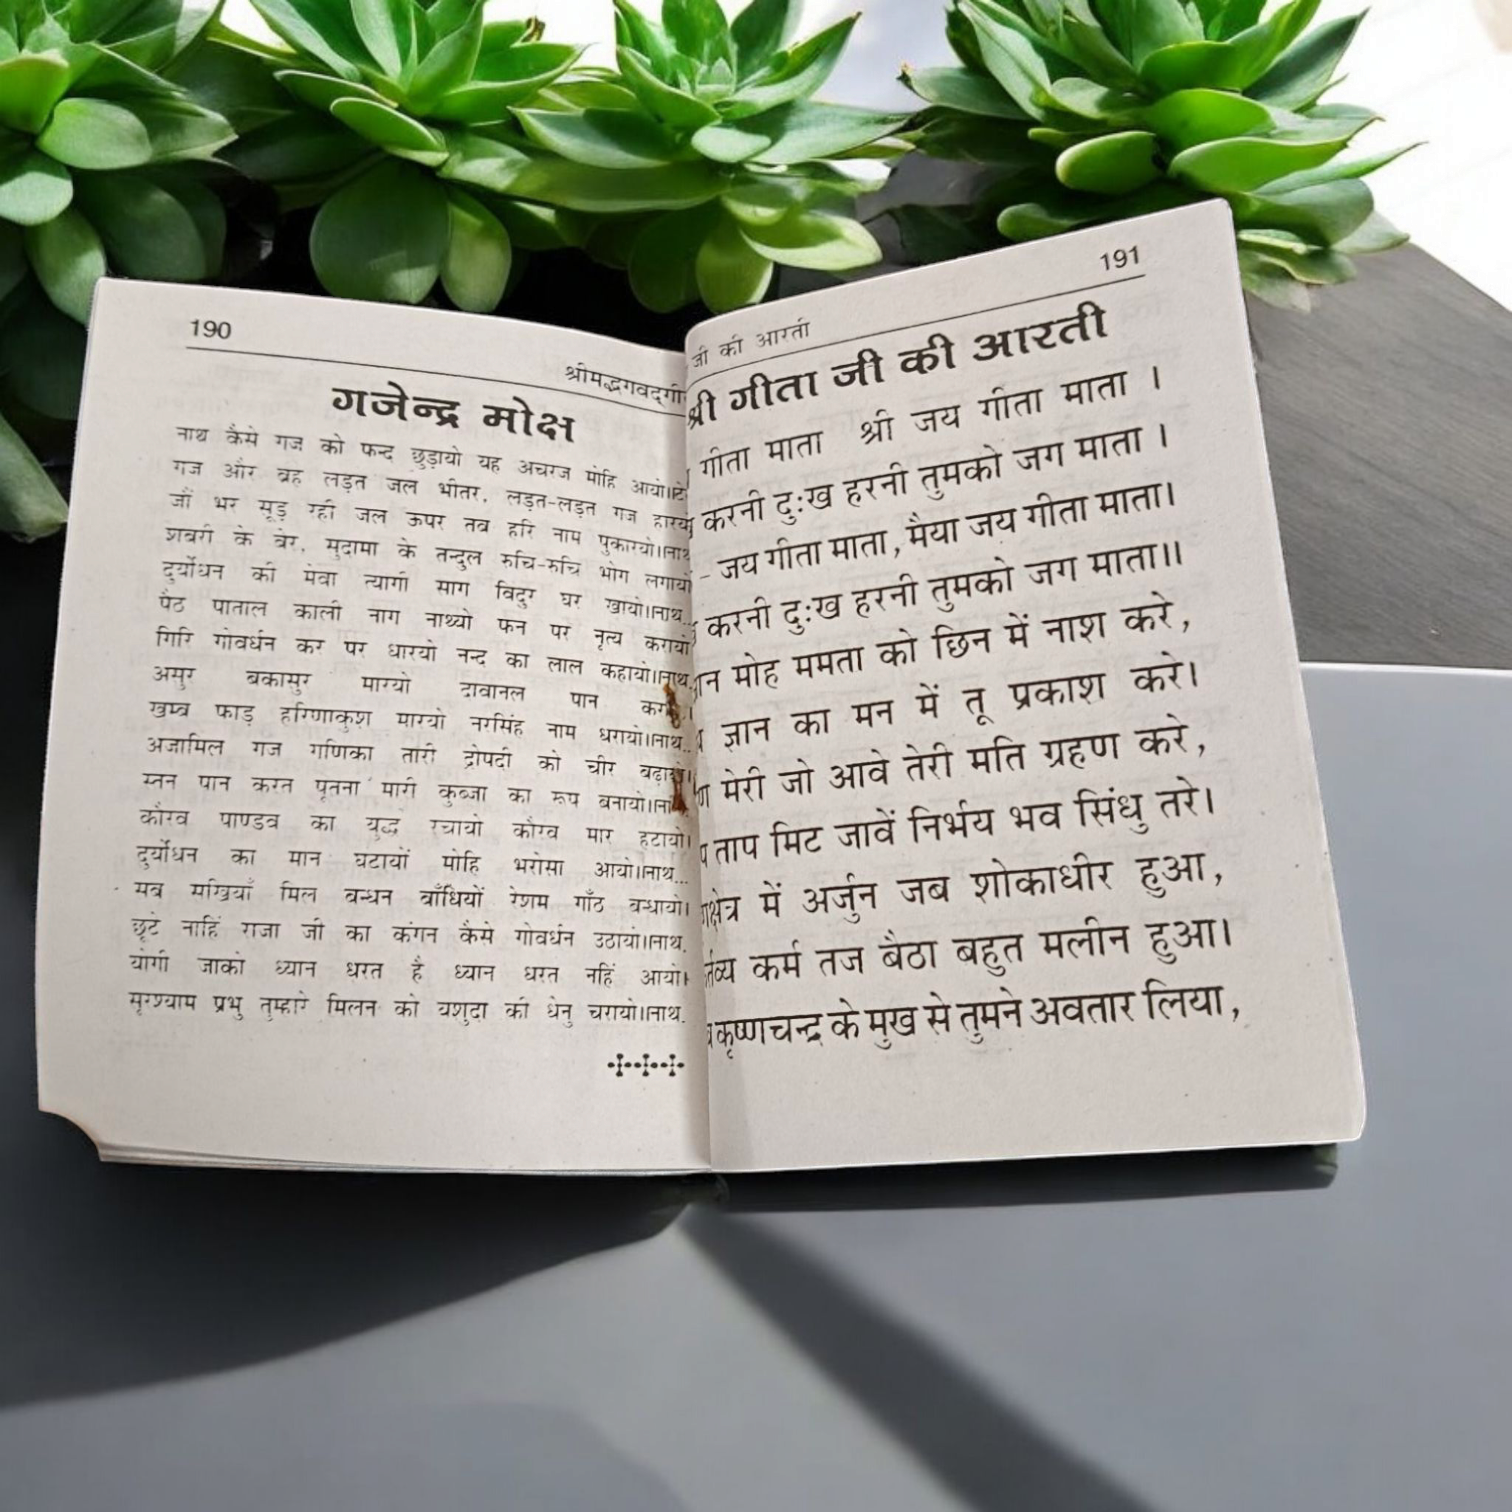 190
श्रीमद्भगवद्गी
गजेन्द्र मोक्ष
नाथ कैसे गज को फन्द छुड़ायो यह अचरज मोहि आयो॥टे
गज और ग्रह लड़त जल भीतर, लड़त-लड़त गज हारयो
जौं भर सूड़ रही जल ऊपर तब हरि नाम पुकारयो॥नाथ
शबरी के बेर, सुदामा के तन्दुल रुचि-रुचि भोग लगायो
दुर्योधन की मेवा त्यागी साग विदुर घर खायो॥नाथ...
पैठ पाताल काली नाग नाथ्यो फन पर नृत्य करायो
गिरि गोवर्धन कर पर धारयो नन्द का लाल कहायो॥नाथ.
असुर बकासुर मारयो दावानल पान
खम्ब फाड़ हरिणाकुश मारयो नरसिंह नाम धरायो॥नाथ..
अजामिल गज गणिका तारी द्रोपदी को चीर
स्तन पान करत पूतना मारी कुब्जा का रूप बनायो॥ना
कौरव पाण्डव का युद्ध रचायो कौरव मार हटायो।
दुर्योधन का मान घटायों मोहि भरोसा आयो॥नाथ...
सब सखियाँ मिल बन्धन बाँधियों रेशम गाँठ बन्धायो।
छूटे नाहिं राजा जी का कंगन कैसे गोवर्धन उठायो॥नाथ.
योगी जाको ध्यान धरत है ध्यान धरत नहिं आयो।
सूरश्याम प्रभु तुम्हारे मिलन को यशुदा की धेनु चरायो॥नाथ.
191
जी की आरती
श्री गीता जी की आरती
गीता माता श्री जय गीता माता ।
करनी दुःख हरनी तुमको जग माता ।
- जय गीता माता, मैया जय गीता माता।
करनी दुःख हरनी तुमको जग माता॥
ान मोह ममता को छिन में नाश करे,
ज्ञान का मन में तू प्रकाश करे।
ण मेरी जो आवे तेरी मति ग्रहण करे,
प ताप मिट जावें निर्भय भव सिंधु तरे।
क्षेत्र में अर्जुन जब शोकाधीर हुआ,
र्तव्य कर्म तज बैठा बहुत मलीन हुआ।
कृष्णचन्द्र के मुख से तुमने अवतार लिया,